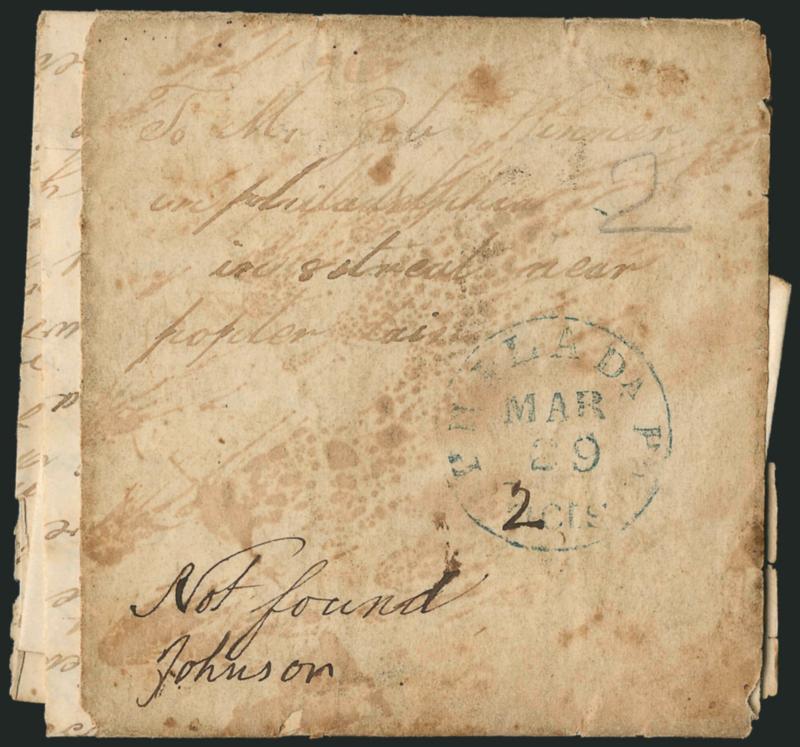 To Mr Job Skinner
in philadelphia
in sdtreat near
popler
2
PHILADA PA
MAR
29
2 CTS
2
Not found
Johnson